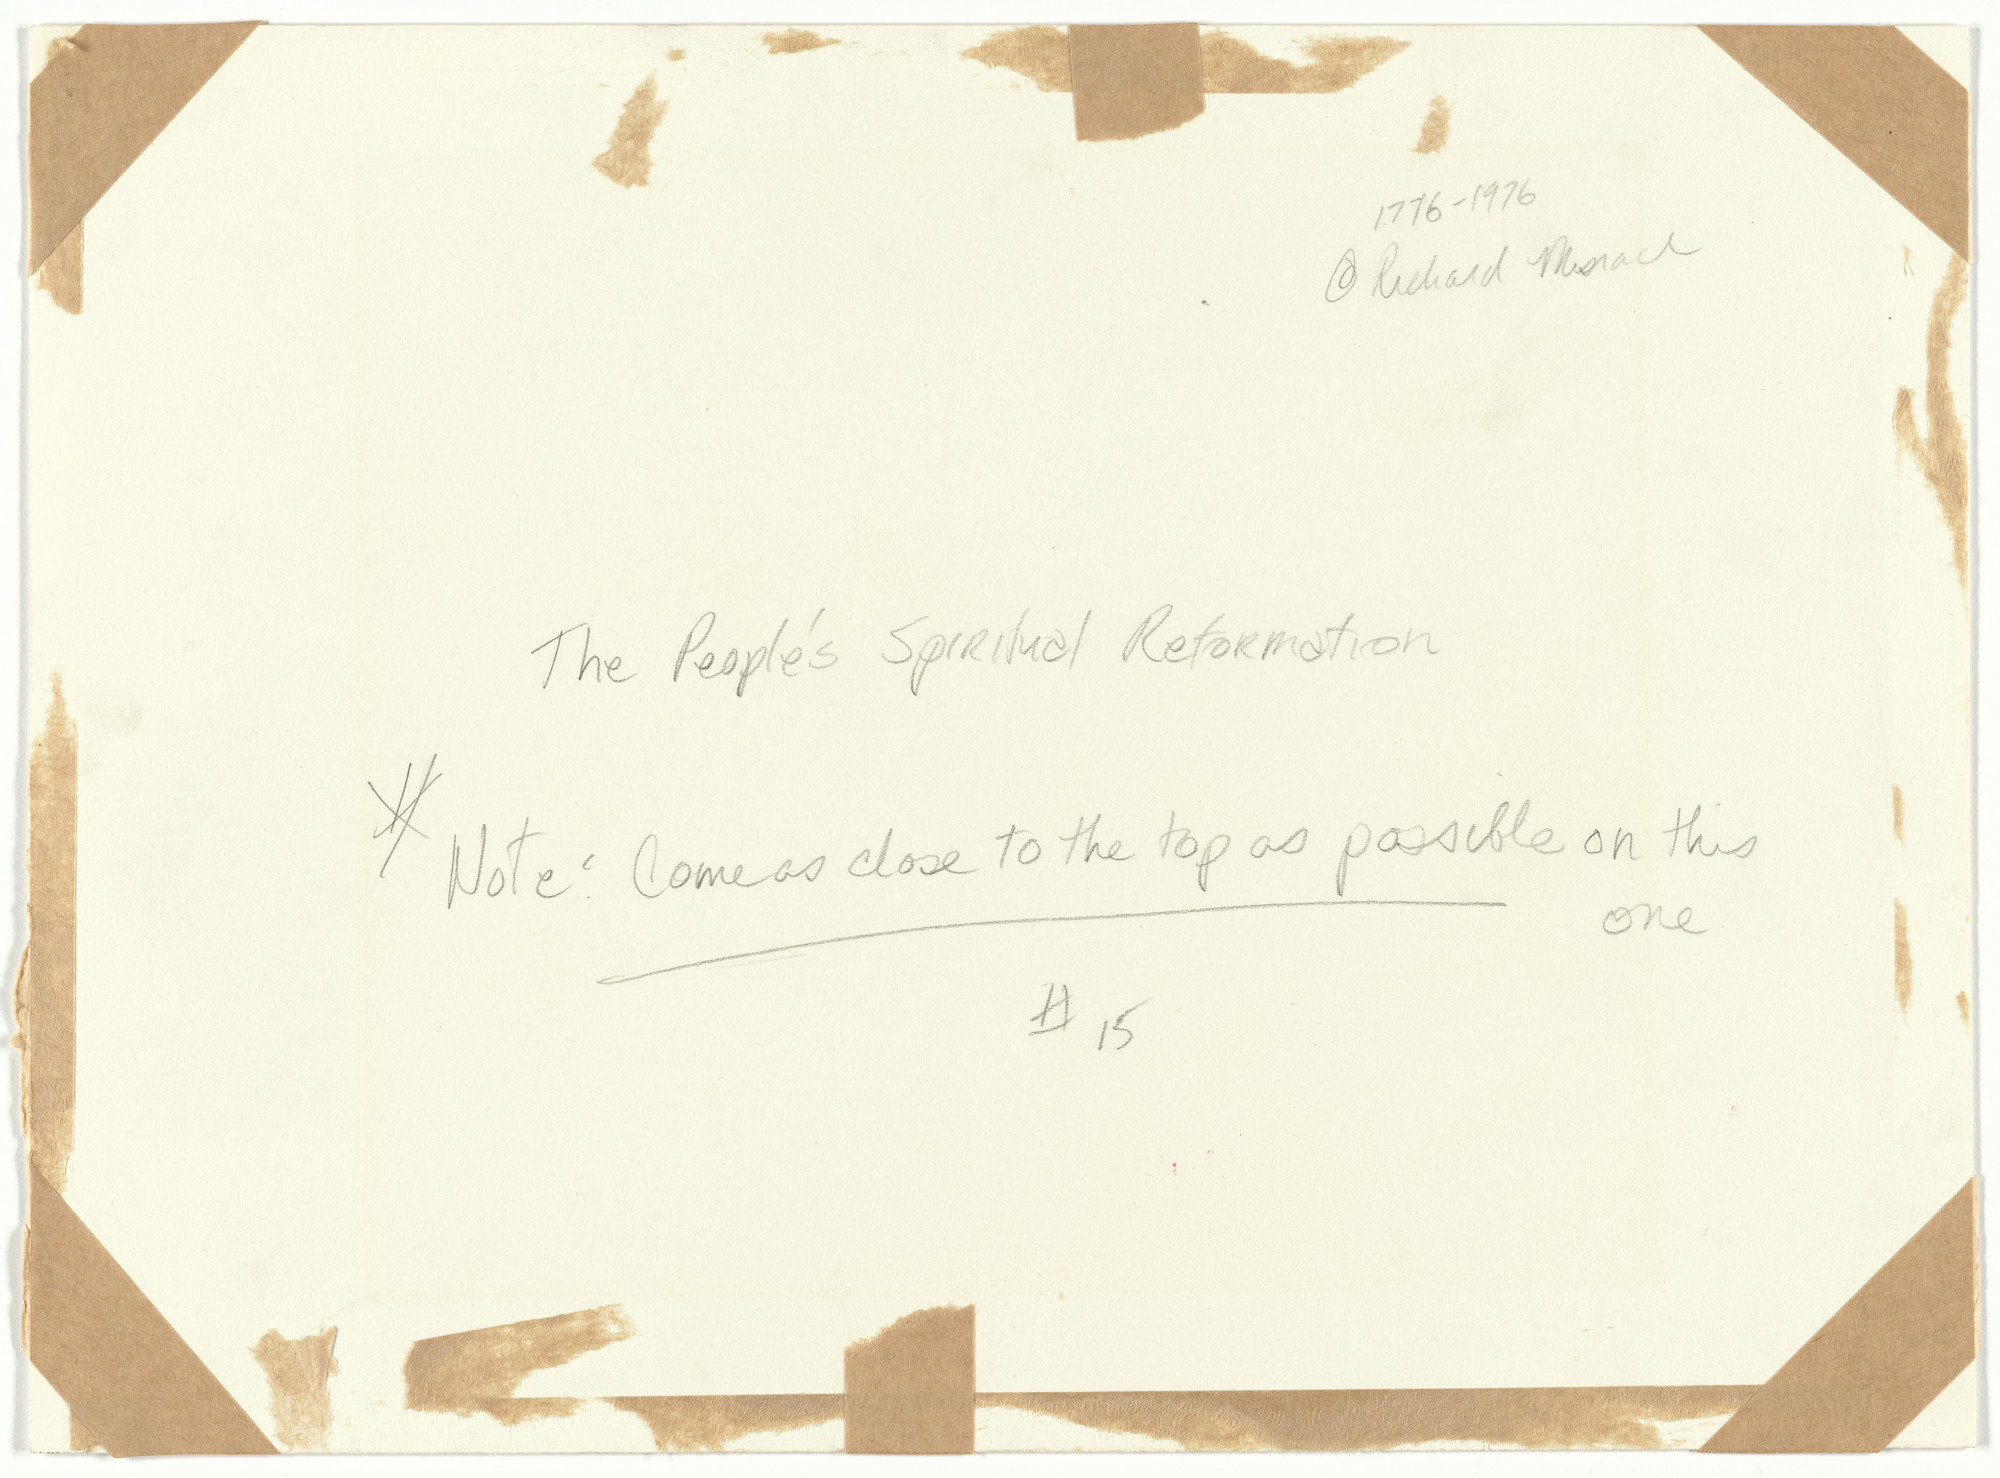 1776-1976
© Richard Mosnack
The People's Spiritual Reformation
* Note: Come as close to the top as possible on this
one
# 15